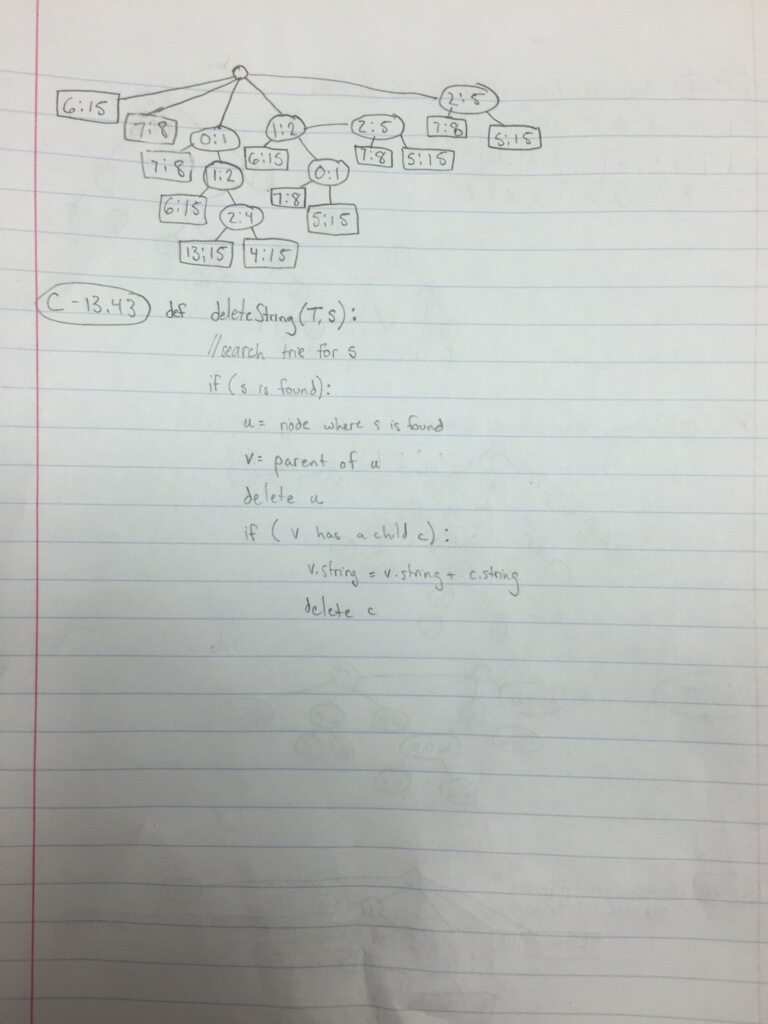 6:15
7:8
0:1
1:2
2:5
2:5
7:8
1:2
6:15
0:1
7:8
5:15
7:8
5:15
6:15
2:4
7:8
5:15
13:15
4:15
C-13.43 def deleteString(T,s):
//search trie for s
if (s is found):
u = node where s is found
v = parent of u
delete u
if ( v has a child c):
v.string = v.string + c.string
delete c